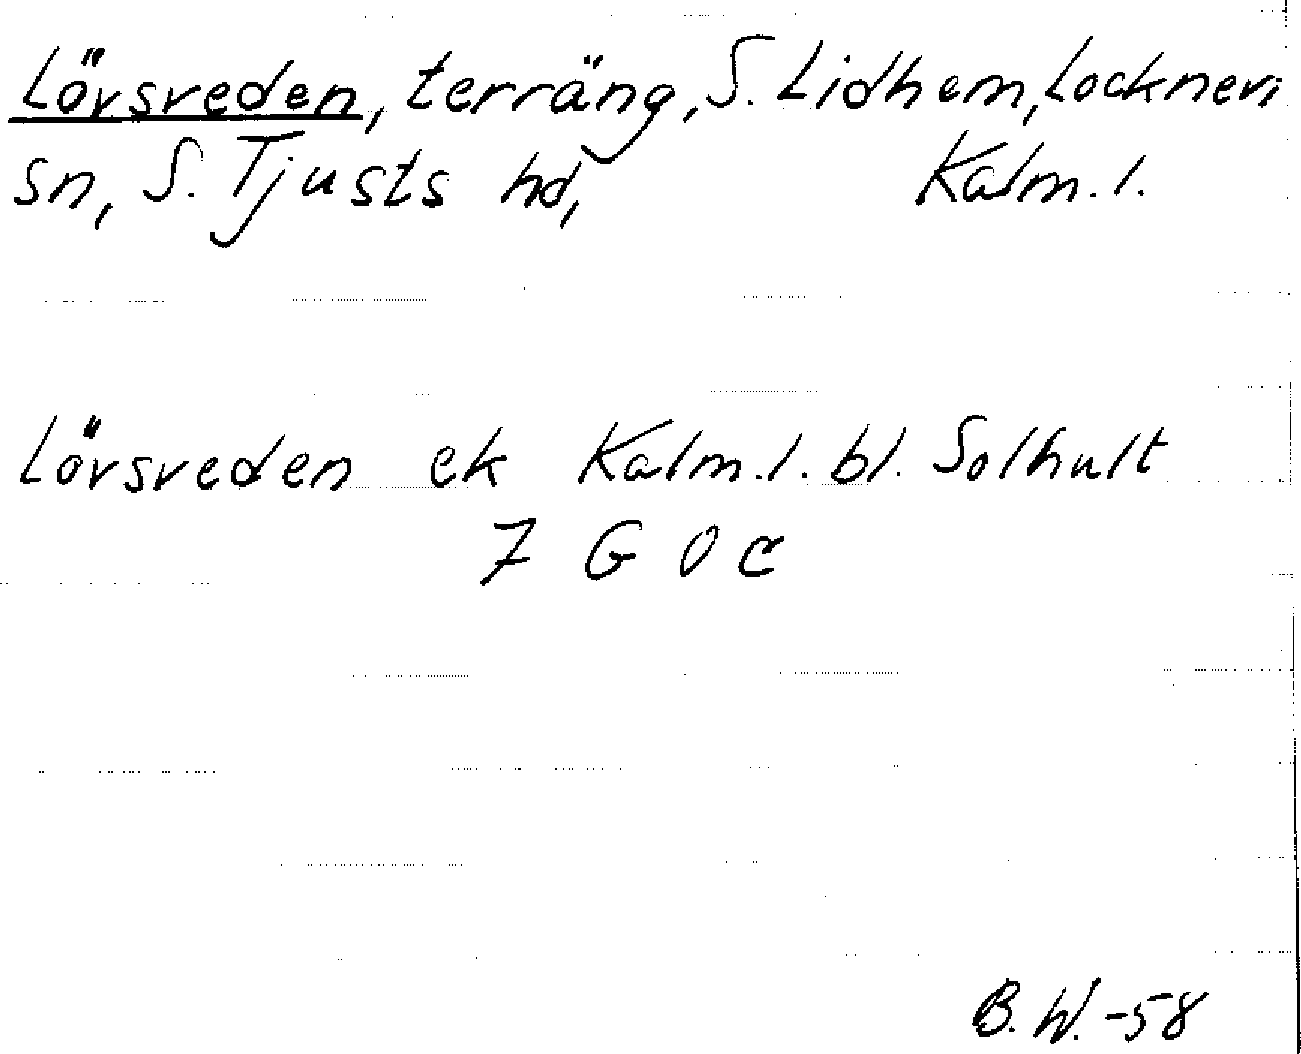 Lövsveden, terräng, S. Lidhem, Locknevi
sn, S. Tjusts hd, Kalm. l.
Lövsveden ek Kalm. l. bl. Solhult
7 G 0 c
B. W. -58